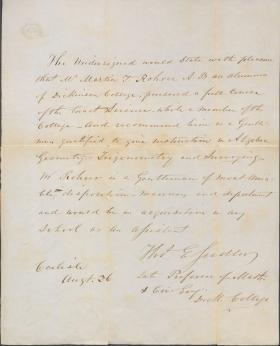 The Undersigned would State with pleasure
that Mr Martin F Rohrer A B an alumnus
of Dickinson College, pursued a full Course
of the Exact Sciences while a member of the
College – and recommend him as a Gentle-
man qualified to give instruction in Algebra
Geometry – Trigonometry and Surveying.
Mr Rohrer is a Gentleman of most
disposition – manners and deportment
and would be an acquisition in any
School as an assistant
Thos E Sudler
Late Professor of Math.
Carlisle
Augt. 26
& Civ. Eng.
Dick. College